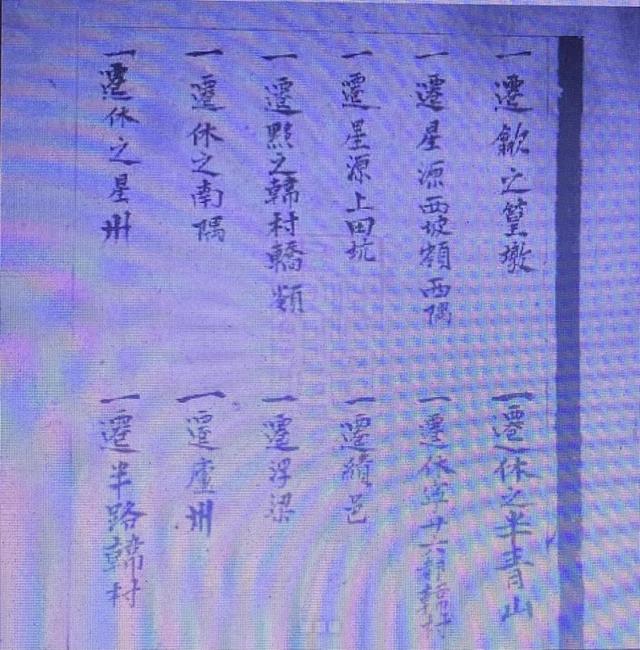 一遷歙之篁墩
一遷休之半青山
一遷星源西坡頬西隅
一遷休寧廿六都韓村
一遷星源上田坑
一遷績邑
一遷黟之韓村轎頬
一遷浮梁
一遷休之南隅
一遷廬州
一遷休之星州
一遷半路韓村